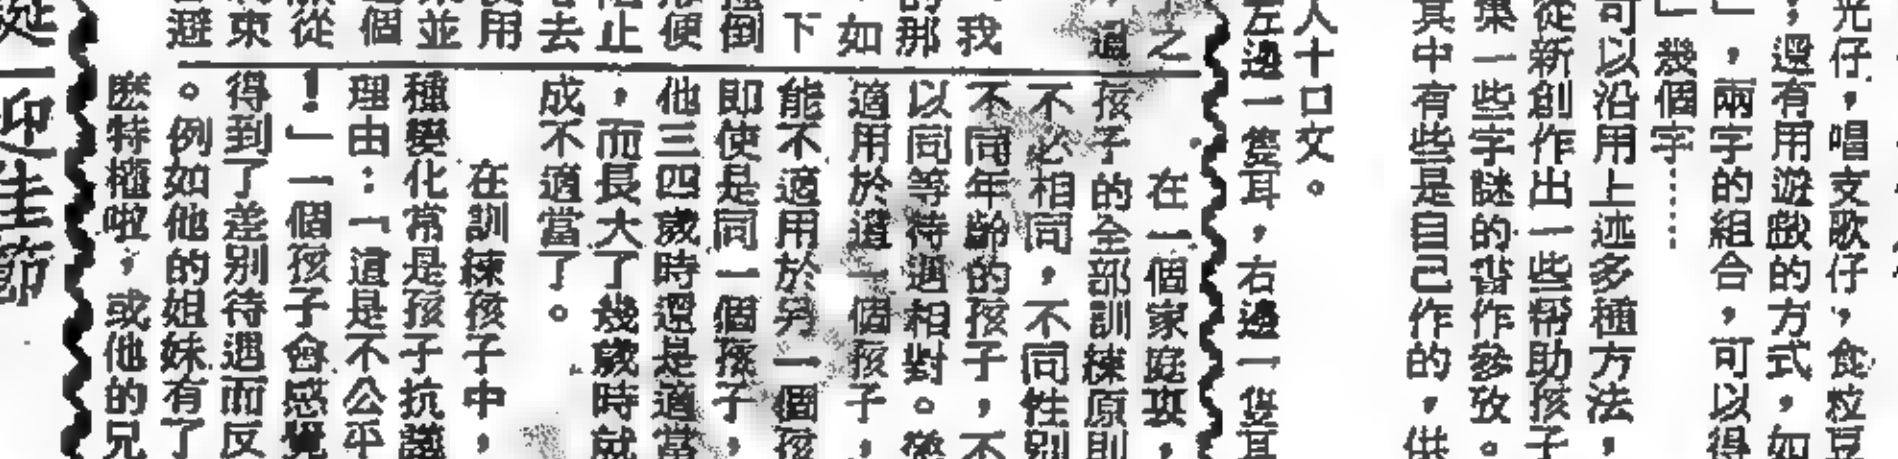 光仔，唱支歌仔，食粒豆
；還有用遊戲的方式，如
」，兩字的組合，可以得
」幾個字……
可以沿用上述多種方法，
從新創作出一些帮助孩子
集一些字謎的書作參攷。
其中有些是自己作的，供
人十口文。
左邊一隻耳，右邊一隻耳
之
，這
我
的那
，如
下
撞倒
便
阻止
去
使用
並
個
從
束
避
在一個家庭裏，
孩子的全部訓練原則
不必相同，不同性别
不同年齡的孩子，不
以同等待遇相對。
適用於這一個孩子，
能不適用於另一個孩
即使是同一個孩子，
他三四歲時還是適當
，而長大了幾歲時就
成不適當了。
在訓練孩子中，
種變化常是孩子抗議
理由：「這是不公平
！」一個孩子會感覺
得到了差别待遇而反
。例如他的姐妹有了
麽特權啦，或他的兄
迎佳節